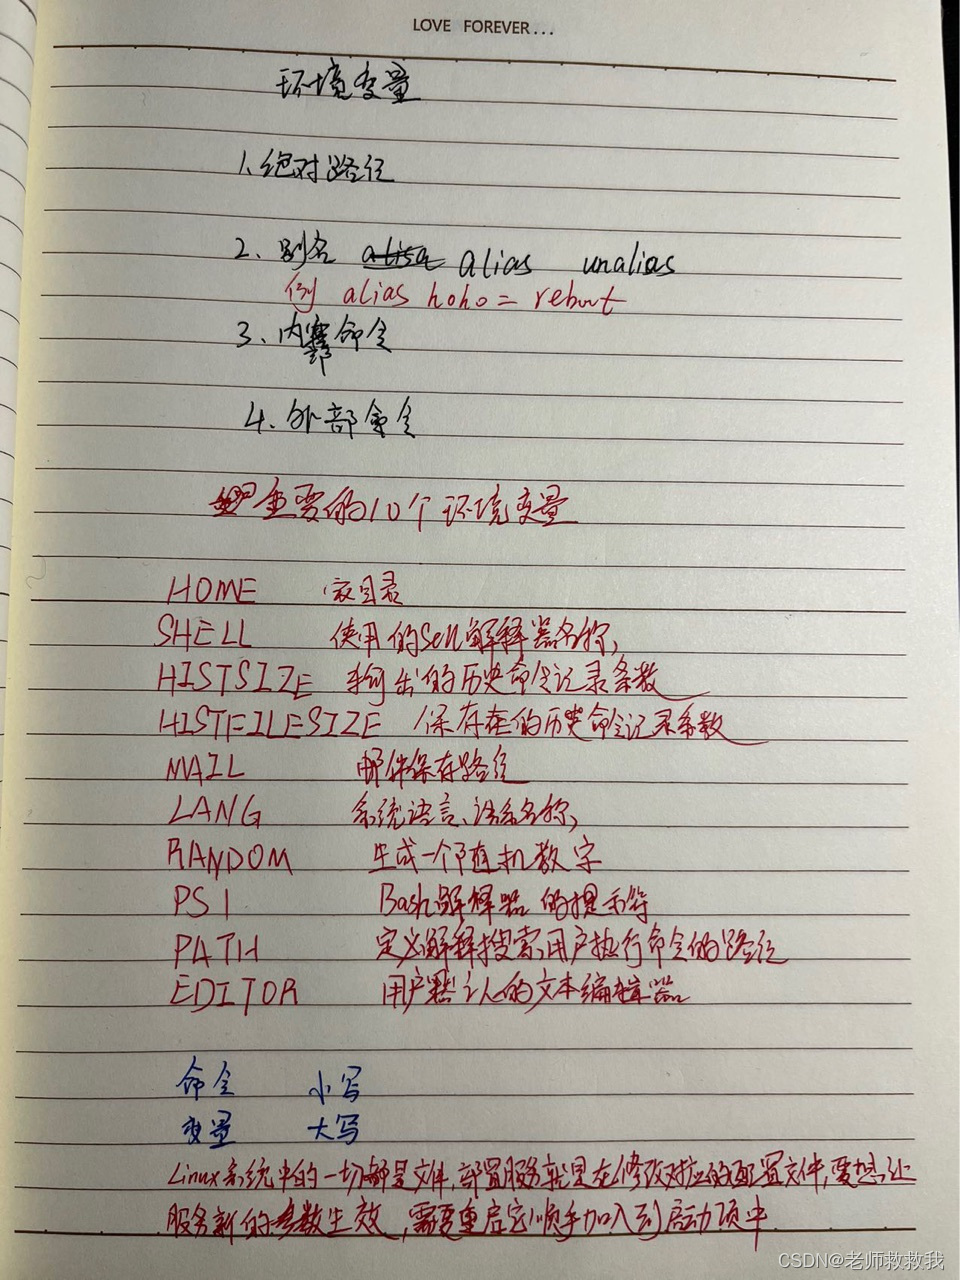 LOVE FOREVER...
环境变量
1、绝对路径
2、别名 alisa alias unalias
例 alias hoho = reboot
3、内部命令
4、外部命令
重要的10个环境变量
HOME 家目录
SHELL 使用的Sell解释器名称
HISTSIZE 输出的历史命令记录条数
HISTFILESIZE 保存在的历史命令记录条数
MAIL 邮件保存路径
LANG 系统语言、语系名称
RANDOM 生成一个随机数字
PS1 Bash解释器的提示符
PATH 定义解释搜索用户执行命令的路径
EDITOR 用户默认的文本编辑器
命令 小写
变量 大写
Linux系统中的一切都是文件,部署服务就是在修改对应的配置文件,要想让
服务新的参数生效,需要重启它顺手加入到启动项中
CSDN@老师救救我